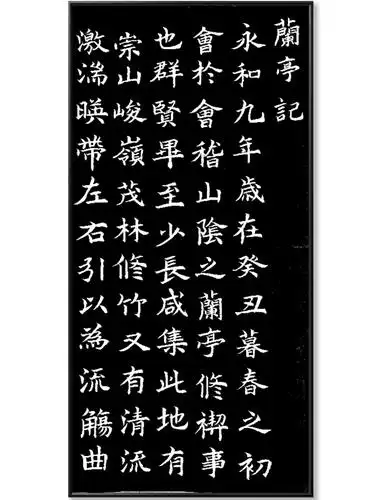 蘭亭記
永和九年歳在癸丑暮春之初
會於會稽山陰之蘭亭修禊事
也群賢畢至少長咸集此地有
崇山峻嶺茂林修竹又有清流
激湍暎帶左右引以為流觴曲